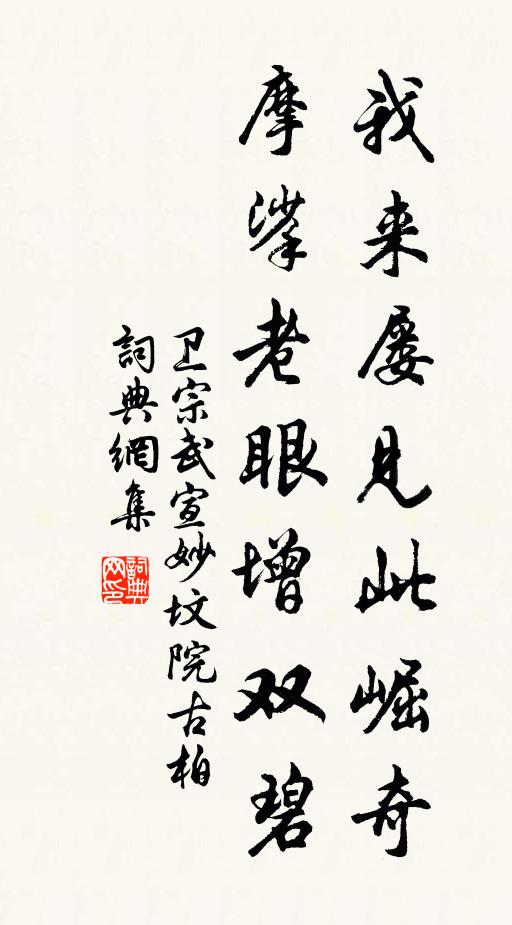 我来屡见此崛奇
摩挲老眼增双碧
卫宗武宣妙坟院古柏
詞典網集
詞典网印